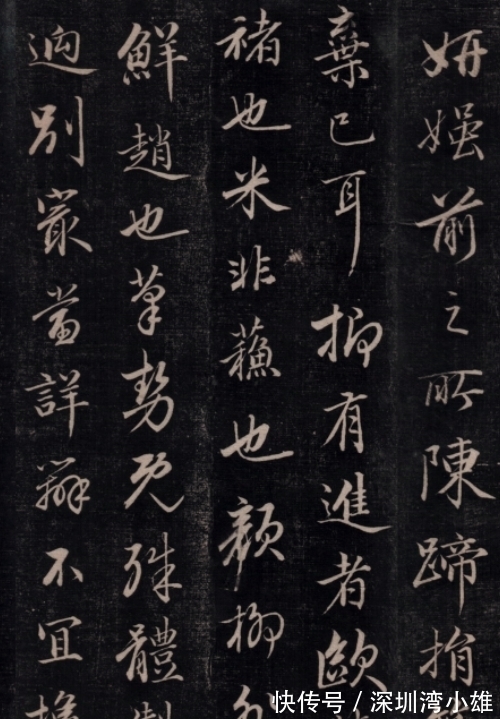 妍媸前之所陳蹄捐
棄已耳抑有進者歐
褚也米非蘇也顏柳
鮮趙也筆勢既殊體製
迥別最當詳辯不宜
快传号/深圳湾小雄